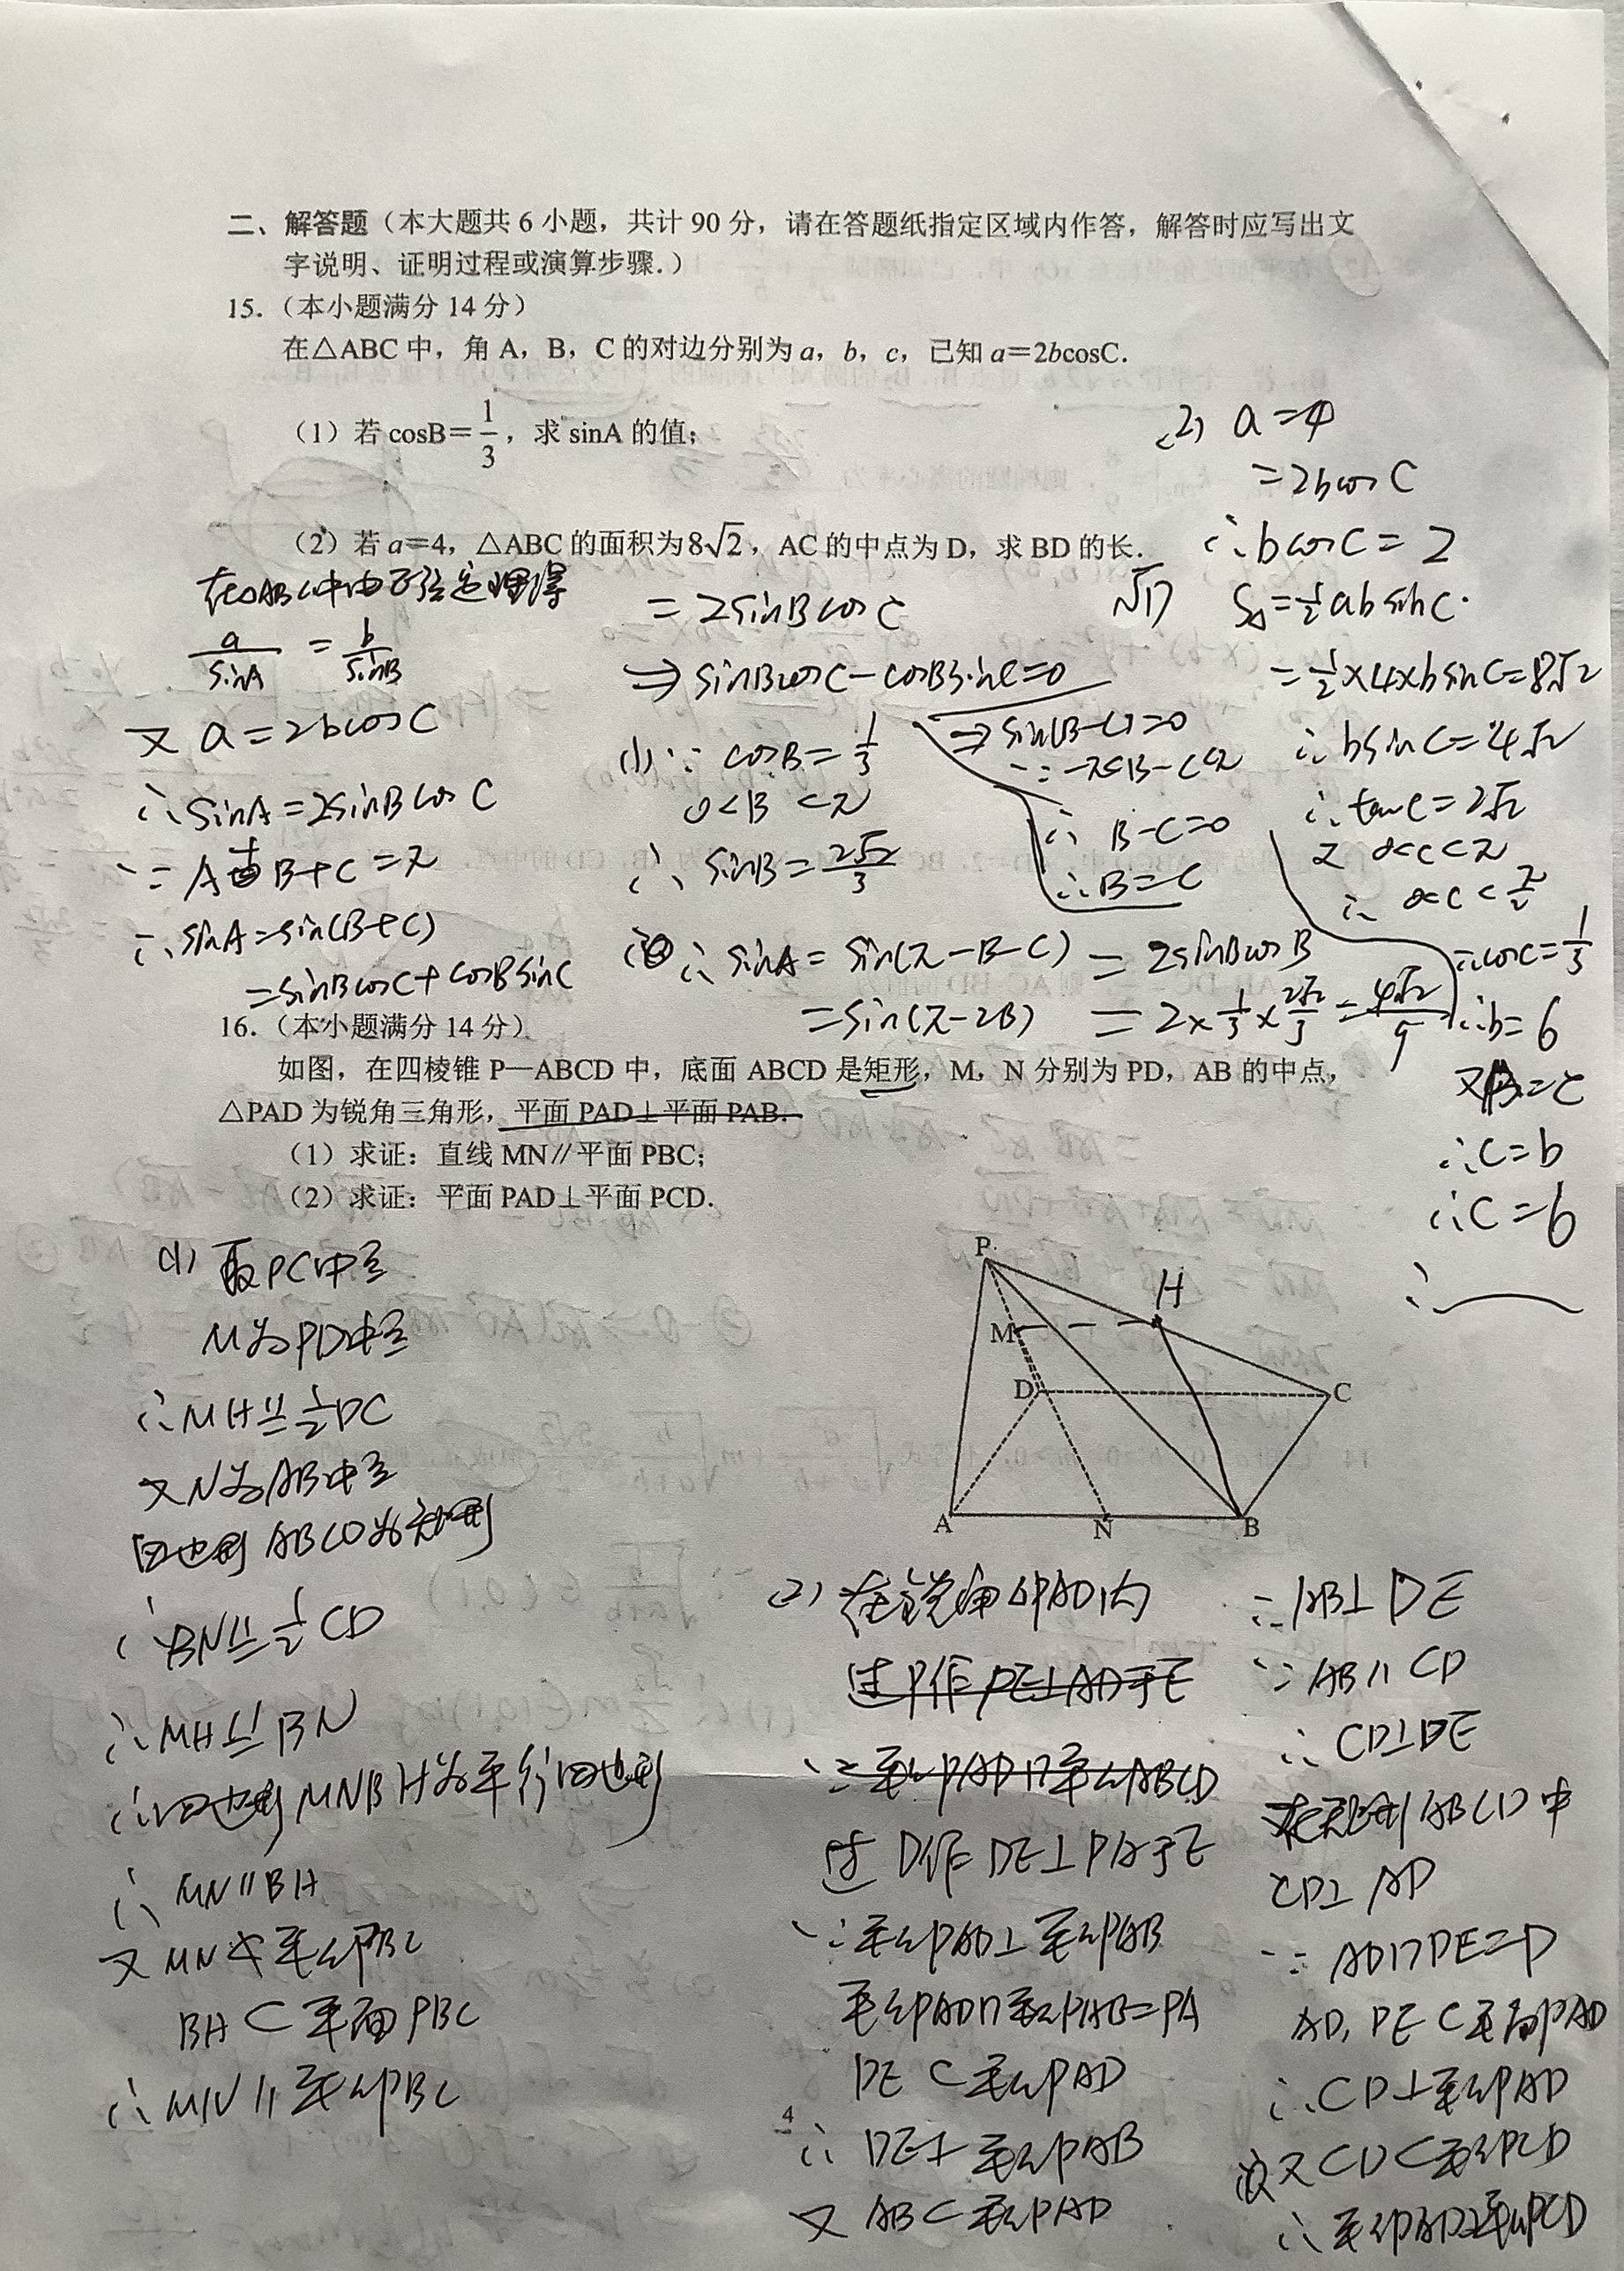 二、解答题（本大题共 6 小题，共计 90 分，请在答题纸指定区域内作答，解答时应写出文
字说明、证明过程或演算步骤.）
15.（本小题满分 14 分）
在△ABC 中，角 A，B，C 的对边分别为 a，b，c，已知 a＝2bcosC.
（1）若 cosB＝1/3，求 sinA 的值；
（2）若 a＝4，△ABC 的面积为8√2，AC 的中点为 D，求 BD 的长.
在△ABC中由正弦定理得
a/sinA = b/sinB
又 a=2bcosC
∴sinA=2sinBcosC
∵A+B+C=π
∴sinA=sin(B+C)
=sinBcosC+cosBsinC
=2sinBcosC
⇒sinBcosC-cosBsinC=0
⇒sin(B-C)=0
∵-π<B-C<π
∴B-C=0
∴B=C
(1)∵cosB=1/3
0<B<π
∴sinB=2√2/3
∴sinA=sin(π-B-C)
=sin(π-2B)
=2sinBcosB
=2×1/3×2√2/3=4√2/9
√17
(2) a=4
=2bcosC
∴bcosC=2
S△=1/2absinC.
=1/2×4×bsinC=8√2
∴bsinC=4√2
∴tanC=2√2
又 0<C<π
∴0<C<π/2
∴cosC=1/3
∴b=6
又B=C
∴C=b
∴C=6
∴
16.（本小题满分 14 分）
如图，在四棱锥 P—ABCD 中，底面 ABCD 是矩形，M，N 分别为 PD，AB 的中点，
△PAD 为锐角三角形，平面 PAD⊥平面 PAB.
（1）求证：直线 MN∥平面 PBC；
（2）求证：平面 PAD⊥平面 PCD.
P
H
M
D
C
A
N
B
(1) 取PC中点
M为PD中点
∴MH∥=1/2DC
又N为AB中点
四边形ABCD为矩形
∴BN∥=1/2CD
∴MH∥=BN
∴四边形MNBH为平行四边形
∴MN∥BH
又MN⊄平面PBC
BH⊂平面PBC
∴MN∥平面PBC
(2) 在锐角△PAD内
过P作PE⊥AD于E
∵平面PAD∩平面ABCD
过D作DE⊥PA于E
∵平面PAD⊥平面PAB
平面PAD∩平面PAB=PA
DE⊂平面PAD
∴DE⊥平面PAB
又AB⊂平面PAD
∴AB⊥DE
∵AB∥CD
∴CD⊥DE
在矩形ABCD中
CD⊥AD
∵AD∩DE=D
AD,DE⊂平面PAD
∴CD⊥平面PAD
又CD⊂平面PCD
∴平面PAD⊥平面PCD
4